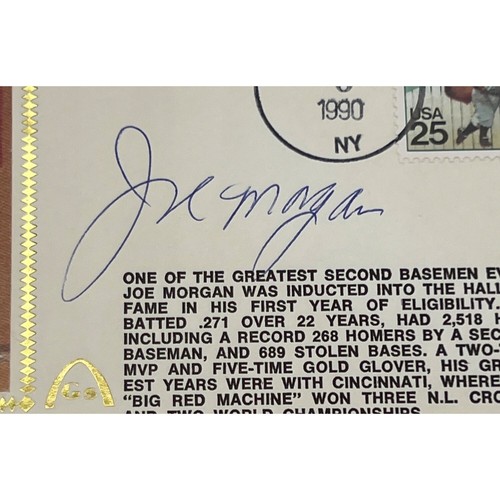 1990
NY
USA
25
Joe Morgan
ONE OF THE GREATEST SECOND BASEMEN
JOE MORGAN WAS INDUCTED INTO THE HALL
FAME IN HIS FIRST YEAR OF ELIGIBILITY.
BATTED .271 OVER 22 YEARS, HAD 2,518 H
INCLUDING A RECORD 268 HOMERS BY A SEC
BASEMAN, AND 689 STOLEN BASES. A TWO-
MVP AND FIVE-TIME GOLD GLOVER, HIS GR
EST YEARS WERE WITH CINCINNATI, WHERE
"BIG RED MACHINE" WON THREE N.L. CRO
AND TWO WORLD CHAMPIONSHIPS
GS